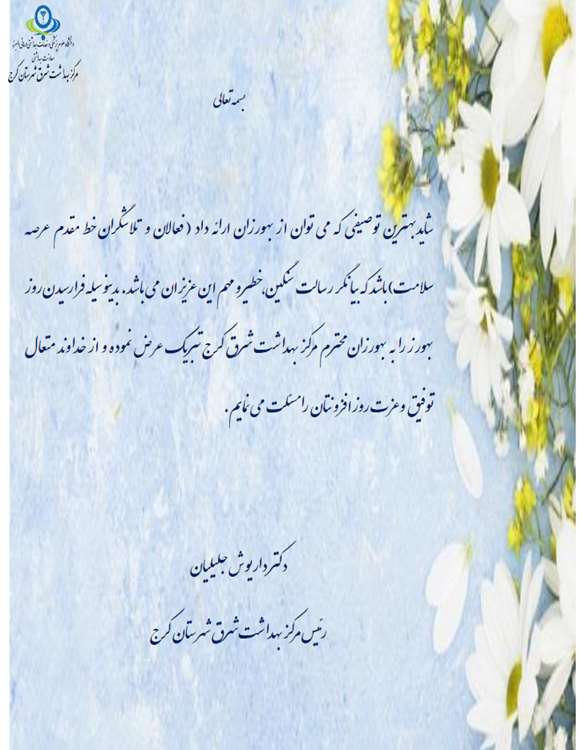 دانشگاه علوم پزشکی و خدمات بهداشتی درمانی البرز
معاونت بهداشتی
مرکز بهداشت شرق شهرستان کرج
بسمه تعالی
شاید بهترین توصیفی که می توان از بهورزان ارائه داد ( فعالان و تلاشگران خط مقدم عرصه
سلامت) باشد که بیانگر رسالت سنگین، خطیر و مهم این عزیزان می باشد. بدینوسیله فرارسیدن روز
بهورز را به بهورزان محترم مرکز بهداشت شرق کرج تبریک عرض نموده و از خداوند متعال
توفیق و عزت روز افزونتان را مسئلت می نمایم .
دکتر داریوش جلیلیان
رئیس مرکز بهداشت شرق شهرستان کرج